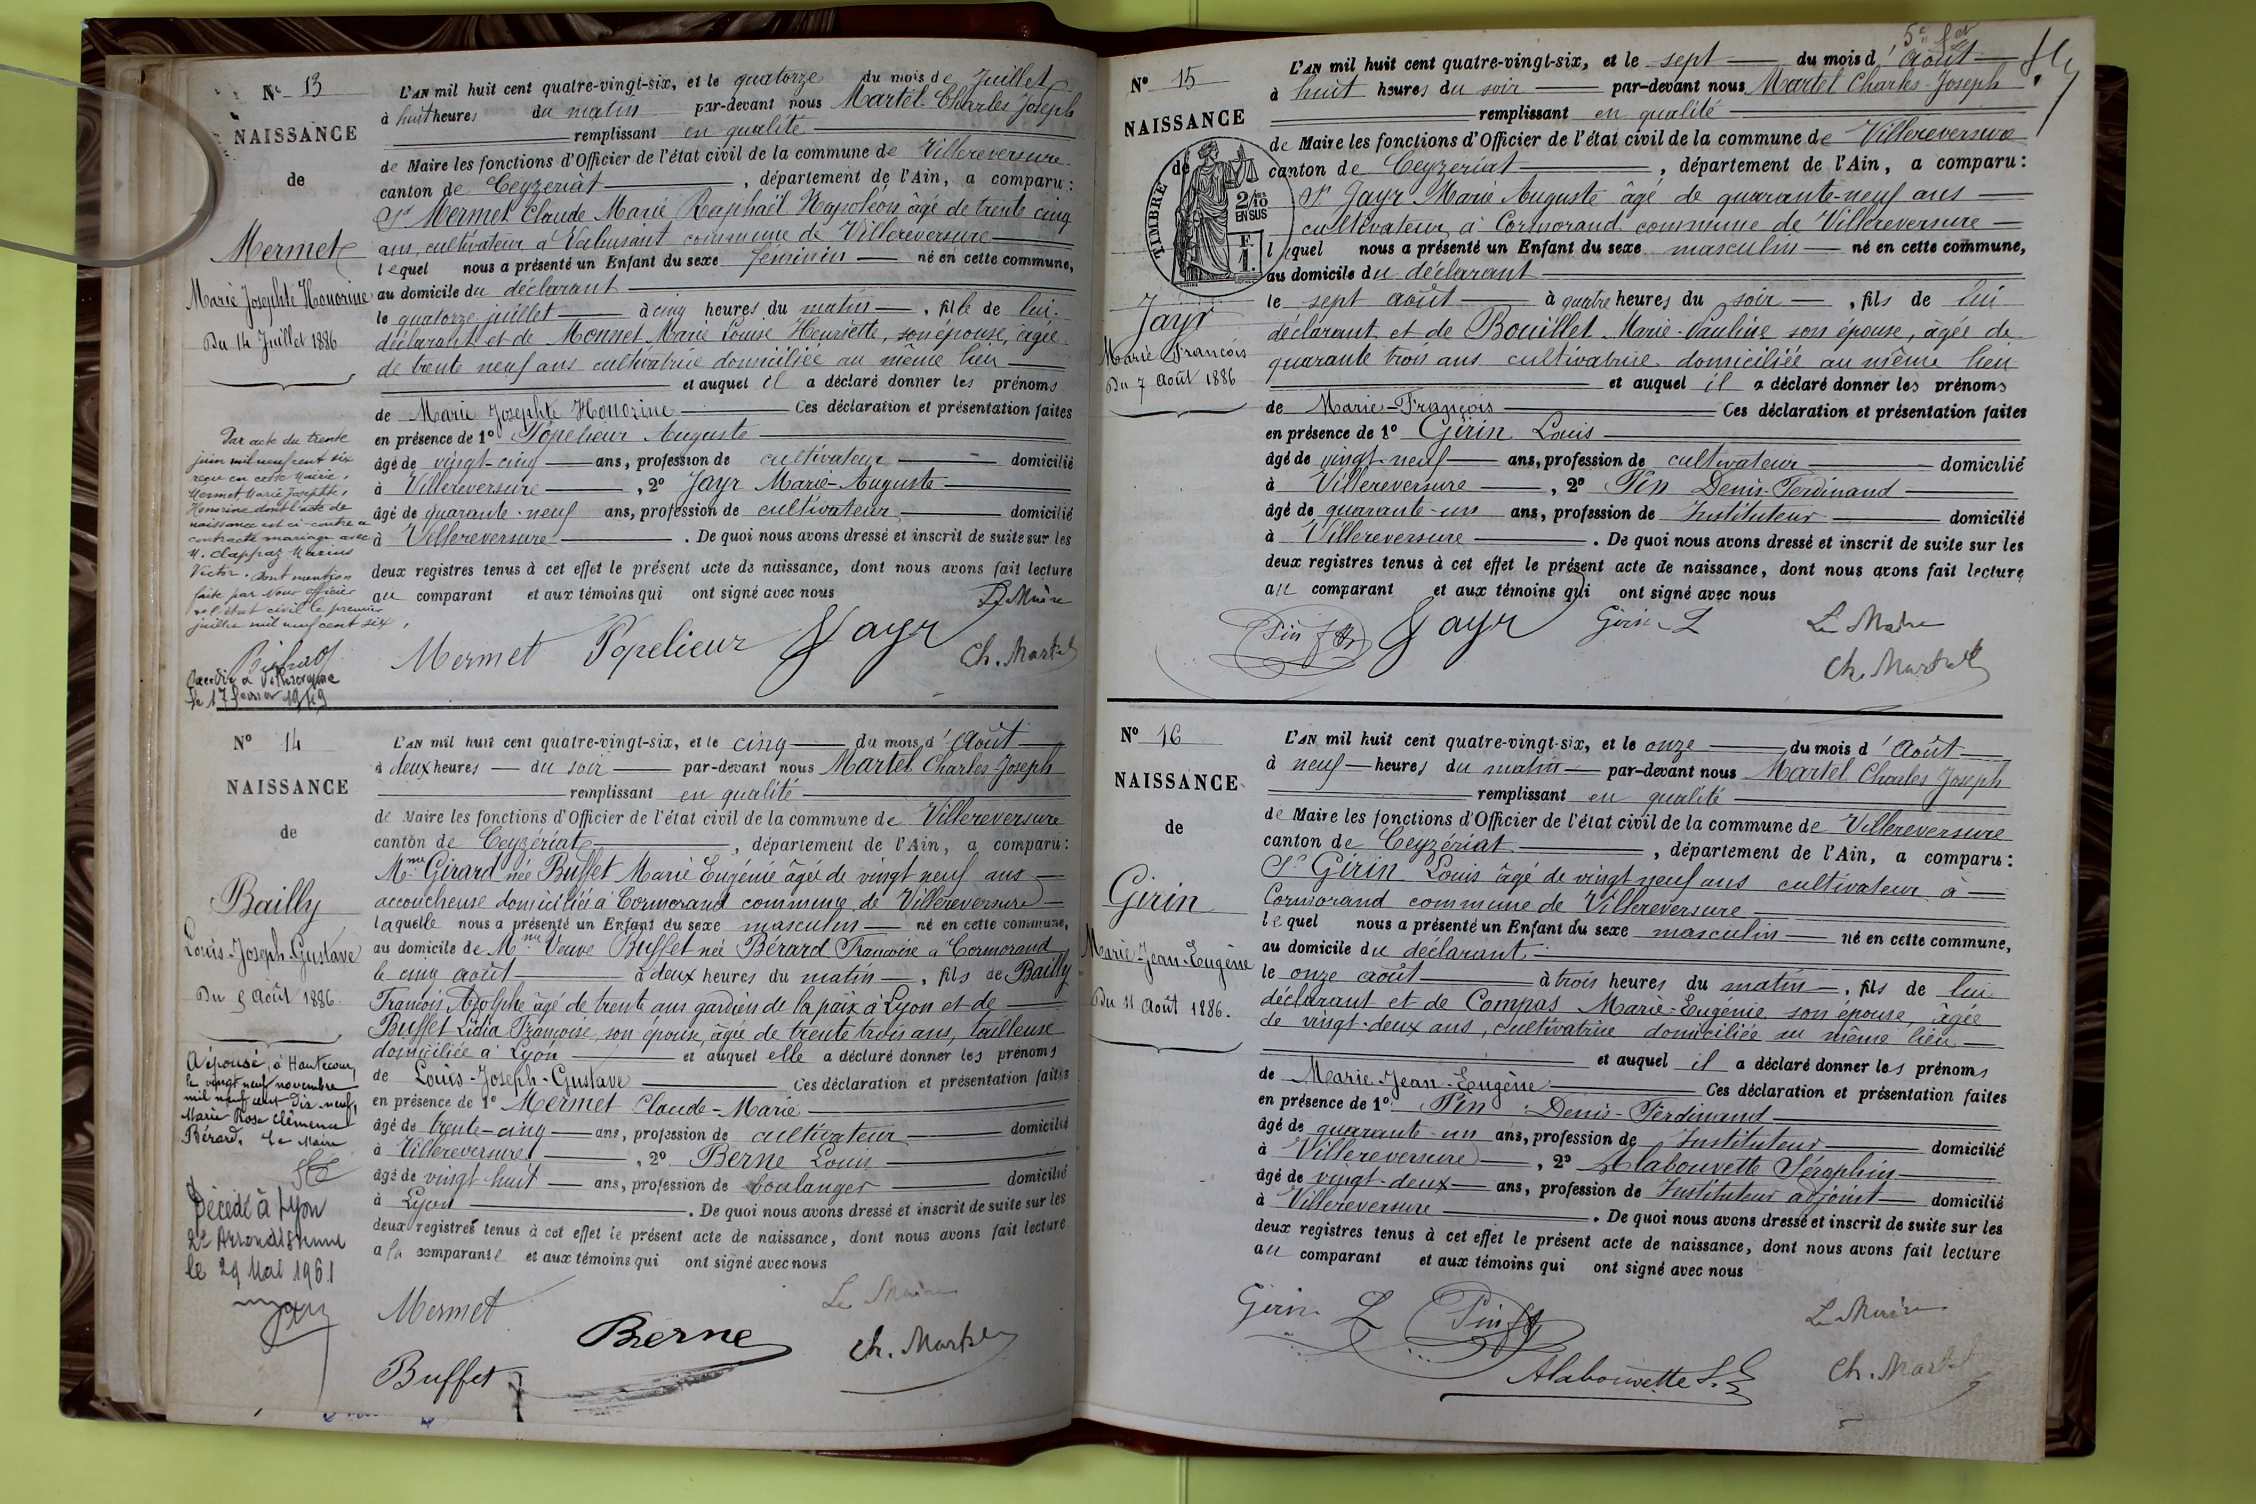 Nº 13
NAISSANCE
de
Mermet
Marie Josephte Honorine
Du 14 Juillet 1886
Par acte du trente
juin mil neuf cent six
reçu en cette Mairie,
Mermet Marie Josephte,
Honorine dont l'acte de
naissance est ci-contre a
contracté mariage avec
M. Clappaz Marius
Victor. Dont mention
faite par Nous officier
de l'état civil le premier
juillet mil neuf cent six.
Décédée à Villereversure
le 17 février 1949
L'AN mil huit cent quatre-vingt-six, et le quatorze du mois de Juillet
à huit heures du matin par-devant nous Martel Charles Joseph
remplissant en qualité
de Maire les fonctions d'Officier de l'état civil de la commune de Villereversure
canton de Ceyzériat, département de l'Ain, a comparu:
Sr Mermet Claude Marie Raphaël Napoléon âgé de trente cinq
ans, cultivateur à Valuisant commune de Villereversure
lequel nous a présenté un Enfant du sexe féminin né en cette commune,
au domicile du déclarant
le quatorze juillet à cinq heures du matin, fille de lui
déclarant et de Monnet Marie Louise Henriette, son épouse, âgée
de trente neuf ans cultivatrice domiciliée au même lieu
et auquel il a déclaré donner les prénoms
de Marie Josephte Honorine Ces déclaration et présentation faites
en présence de 1º Popelieur Auguste
âgé de vingt-cinq ans, profession de cultivateur domicilié
à Villereversure, 2º Jayr Marie-Auguste
âgé de quarante-neuf ans, profession de cultivateur domicilié
à Villereversure. De quoi nous avons dressé et inscrit de suite sur les
deux registres tenus à cet effet le présent acte de naissance, dont nous avons fait lecture
au comparant et aux témoins qui ont signé avec nous
Le Maire
Mermet Popelieur Jayr Ch. Martel
Nº 14
NAISSANCE
de
Bailly
Louis-Joseph-Gustave
Du 5 Août 1886.
A épousé, à Hautecour,
le vingt neuf novembre
mil neuf cent dix-neuf,
Marie Rose Clémence
Bérard. Le Maire
Décédé à Lyon
2e Arrondissement
le 29 Mai 1961
L'AN mil huit cent quatre-vingt-six, et le cinq du mois d'Août
à deux heures du soir par-devant nous Martel Charles Joseph
remplissant en qualité
de Maire les fonctions d'Officier de l'état civil de la commune de Villereversure
canton de Ceyzériat, département de l'Ain, a comparu:
Mme Girard née Buffet Marie Eugénie âgée de vingt neuf ans
accoucheuse domiciliée à Cormorand commune de Villereversure
laquelle nous a présenté un Enfant du sexe masculin né en cette commune,
au domicile de Mme Veuve Buffet née Bérard Françoise à Cormorand
le cinq août à deux heures du matin, fils de Bailly
François Adolphe âgé de trente ans gardien de la paix à Lyon et de
Buffet Lidia Françoise, son épouse, âgée de trente trois ans, tailleuse
domiciliée à Lyon et auquel elle a déclaré donner les prénoms
de Louis-Joseph-Gustave Ces déclaration et présentation faites
en présence de 1º Mermet Claude-Marie
âgé de trente-cinq ans, profession de cultivateur domicilié
à Villereversure, 2º Berne Louis
âgé de vingt huit ans, profession de boulanger domicilié
à Lyon. De quoi nous avons dressé et inscrit de suite sur les
deux registres tenus à cet effet le présent acte de naissance, dont nous avons fait lecture
à la comparante et aux témoins qui ont signé avec nous
Le Maire
Mermet
Berne Ch. Martel
Buffet
Nº 15
NAISSANCE
de
TIMBRE
2/10
EN SUS
F.
1.
Jayr
Marie François
Du 7 Août 1886
L'AN mil huit cent quatre-vingt-six, et le sept du mois d'Août
à huit heures du soir par-devant nous Martel Charles-Joseph
remplissant en qualité
de Maire les fonctions d'Officier de l'état civil de la commune de Villereversure
canton de Ceyzeriat, département de l'Ain, a comparu:
Sr Jayr Marie Auguste âgé de quarante-neuf ans
cultivateur à Cormorand commune de Villereversure
lequel nous a présenté un Enfant du sexe masculin né en cette commune,
au domicile du déclarant
le sept août à quatre heures du soir, fils de lui
déclarant et de Bouillet Marie-Pauline son épouse, âgée de
quarante trois ans cultivatrice domiciliée au même lieu
et auquel il a déclaré donner les prénoms
de Marie-François Ces déclaration et présentation faites
en présence de 1º Girin Louis
âgé de vingt-neuf ans, profession de cultivateur domicilié
à Villereversure, 2º Pin Denis-Ferdinand
âgé de quarante-un ans, profession de Instituteur domicilié
à Villereversure. De quoi nous avons dressé et inscrit de suite sur les
deux registres tenus à cet effet le présent acte de naissance, dont nous avons fait lecture
au comparant et aux témoins qui ont signé avec nous
Pin Jayr Girin L Le Maire
Ch. Martel
Nº 16
NAISSANCE
de
Girin
Marie-Jean-Eugène
Du 11 Août 1886.
L'AN mil huit cent quatre-vingt-six, et le onze du mois d'Août
à neuf heures du matin par-devant nous Martel Charles Joseph
remplissant en qualité
de Maire les fonctions d'Officier de l'état civil de la commune de Villereversure
canton de Ceyzériat, département de l'Ain, a comparu:
Sr Girin Louis âgé de vingt neuf ans cultivateur à
Cormorand commune de Villereversure
lequel nous a présenté un Enfant du sexe masculin né en cette commune,
au domicile du déclarant
le onze août à trois heures du matin, fils de lui
déclarant et de Compas Marie-Eugénie, son épouse, âgée
de vingt-deux ans, cultivatrice domiciliée au même lieu
et auquel il a déclaré donner les prénoms
de Marie-Jean-Eugène Ces déclaration et présentation faites
en présence de 1º Pin Denis-Ferdinand
âgé de quarante-un ans, profession de Instituteur domicilié
à Villereversure, 2º Alabouvette Séraphin
âgé de vingt-deux ans, profession de Instituteur adjoint domicilié
à Villereversure. De quoi nous avons dressé et inscrit de suite sur les
deux registres tenus à cet effet le présent acte de naissance, dont nous avons fait lecture
au comparant et aux témoins qui ont signé avec nous
Girin L Pin Le Maire
Alabouvette S. Ch. Martel